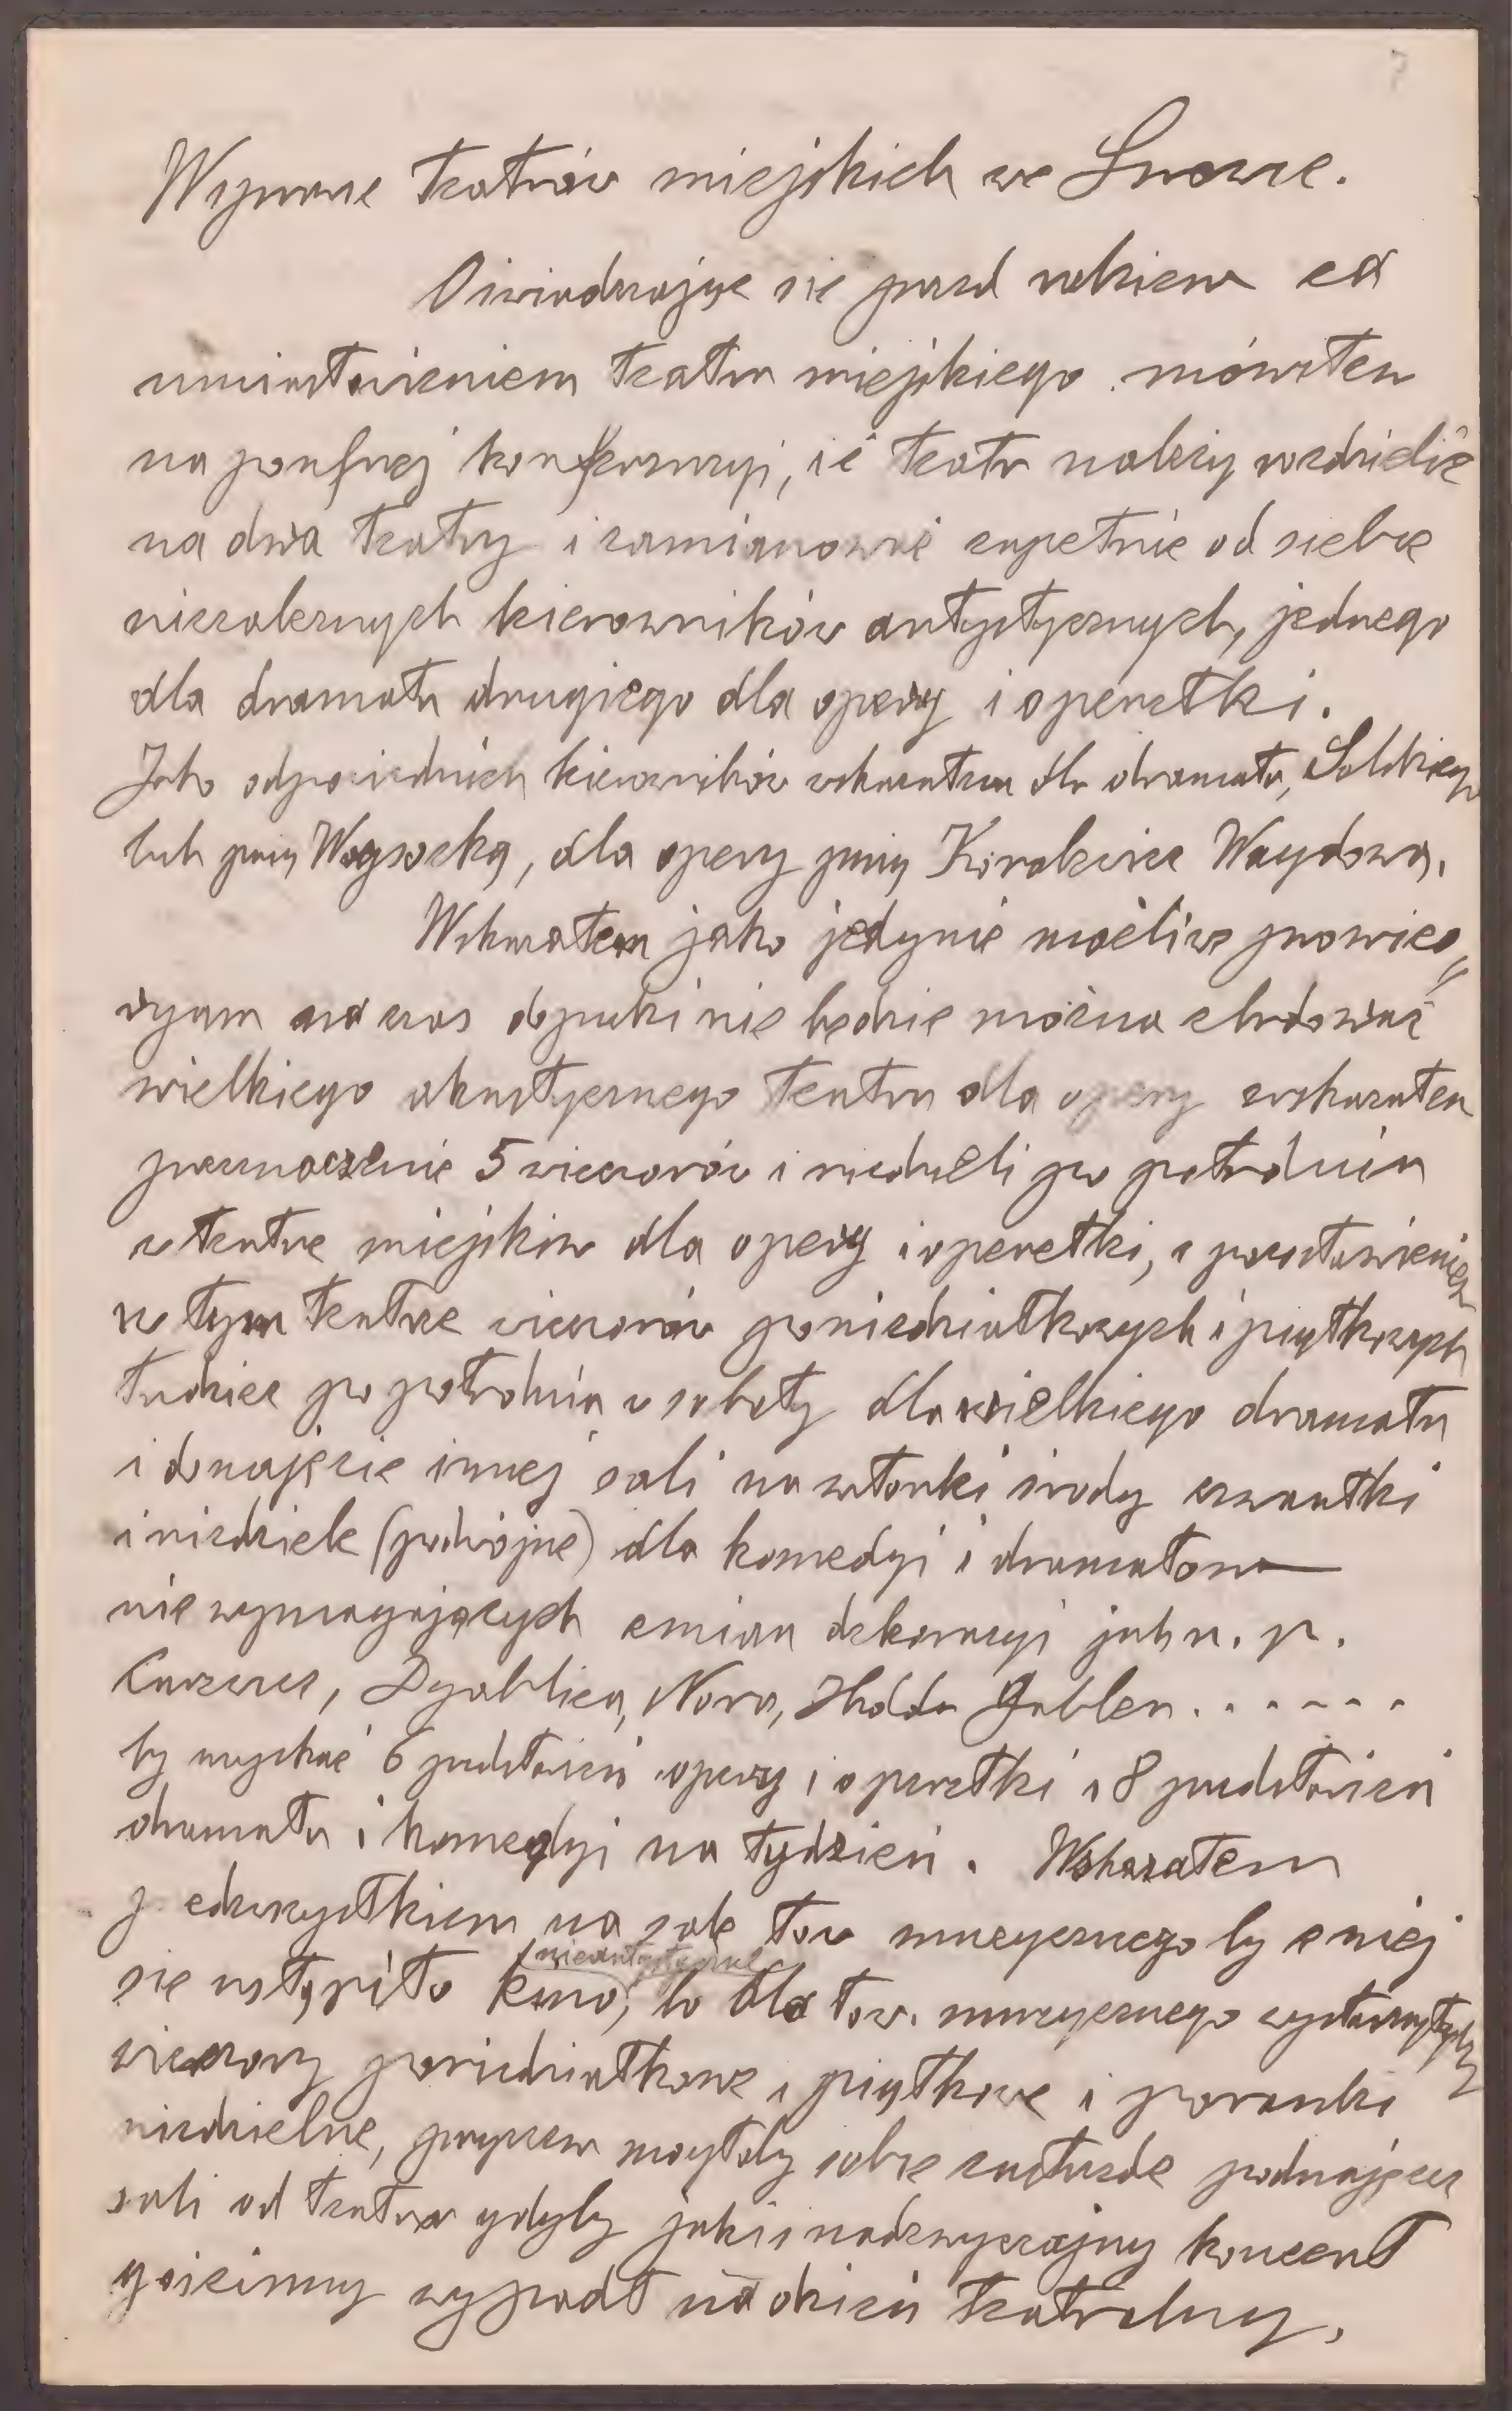 W sprawie teatrów miejskich we Lwowie.
Oświadczając się przed rokiem za
umiastowieniem teatru miejskiego mówiłem
na poufnej konferencyi, iż teatr należy rozdzielić
na dwa teatry i zamianować zupełnie od siebie
niezależnych kierowników artystycznych, jednego
dla dramatu drugiego dla opery i operetki.
Jako odpowiednich kierowników wskazałem dla dramatu, Solskiego
lub panią Wysocką, dla opery panią Korolewicz Waydową.
Wskazałem jako jedynie możliwe prowizo„
ryum na czas dopuki nie będzie można zbudować
wielkiego akustycznego teatru dla opery wskazałem
przeznaczenie 5 wieczorów i niedzieli po południu
w teatrze miejskim dla opery i operetki, z pozostawieniem
w tym teatrze wieczorów poniedziałkowych i piątkowych
tudzież po południu w soboty dla wielkiego dramatu
i donajęcie innej sali na wtorki środy czwartki
i niedziele (podwójne) dla komedyi i dramatów
nie wymagających zmian dekoracyi jak n. p.
Dyablica, Nora, Hedda Gabler......
by uzyskać 6 przedstawień opery i operetki i 8 przedstawień
dramatu i komedyi na tydzień. Wskazałem
przedewszystkiem na salę tow muzycznego by z niej
nieartystyczne
się ustąpiło kino, bo dla tow. muzycznego wystarczyłyby
wieczory poniedziałkowe i piątkowe i poranki
niedzielne, przyczem mogłoby sobie zastrzedz podnajęcie
sali od teatru gdyby jakiś nadzwyczajny koncert
gościnny wypadł na dzień teatralny.